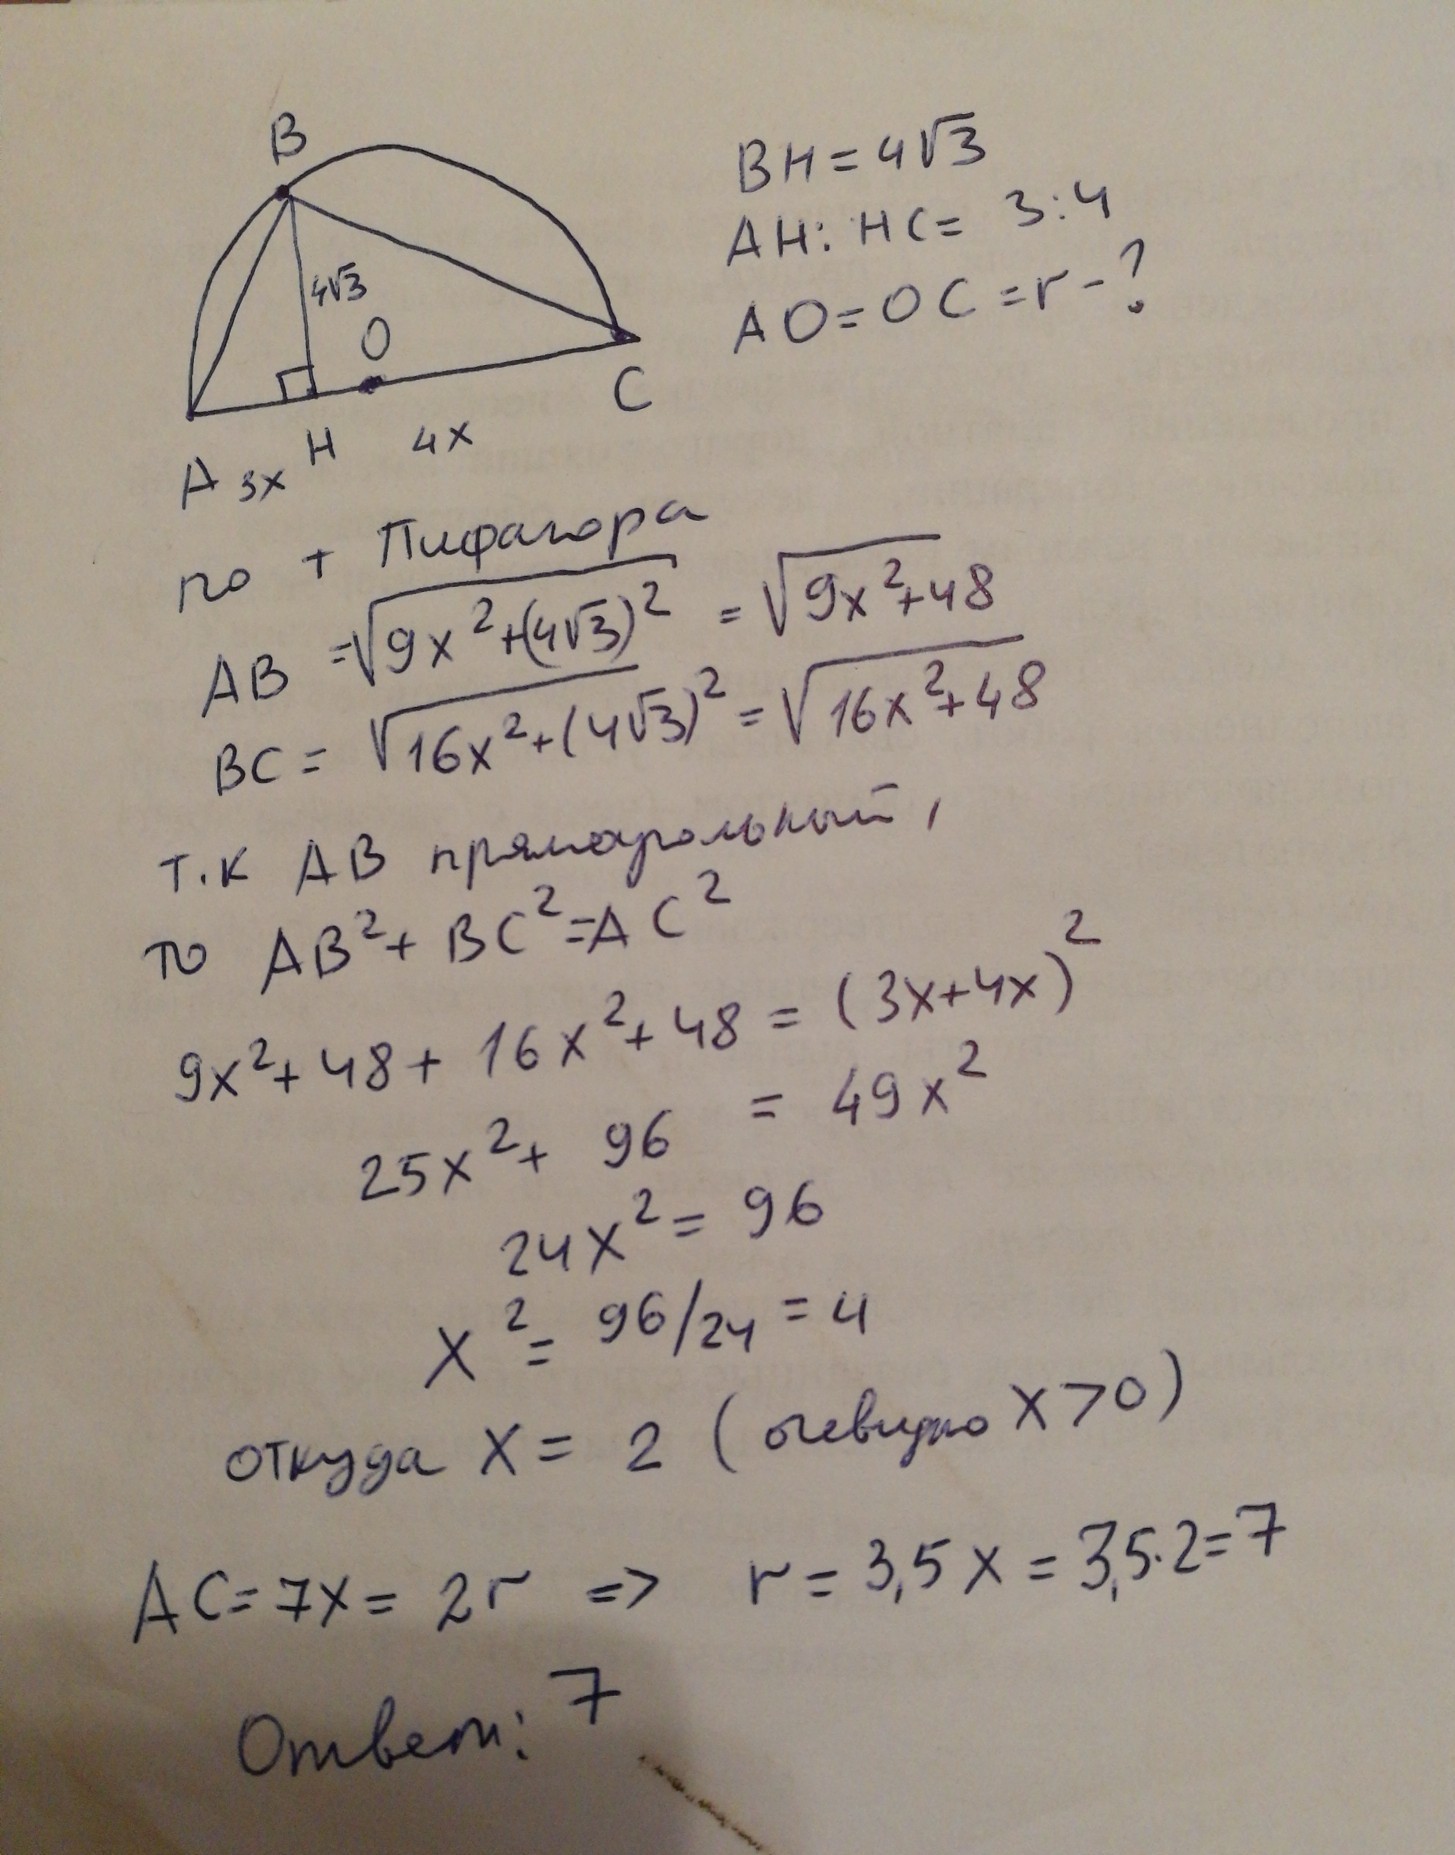 B
BH = 4√3
AH : HC = 3:4
AO = OC = r - ?
4√3
O
C
A 3x H 4x
по т Пифагора
AB = √(9x² + (4√3)²) = √(9x² + 48)
BC = √(16x² + (4√3)²) = √(16x² + 48)
т.к AB прямоугольный,
то AB² + BC² = AC²
9x² + 48 + 16x² + 48 = (3x + 4x)²
25x² + 96 = 49x²
24x² = 96
x² = 96/24 = 4
откуда x = 2 (очевидно x > 0)
AC = 7x = 2r => r = 3,5x = 3,5·2 = 7
Ответ: 7